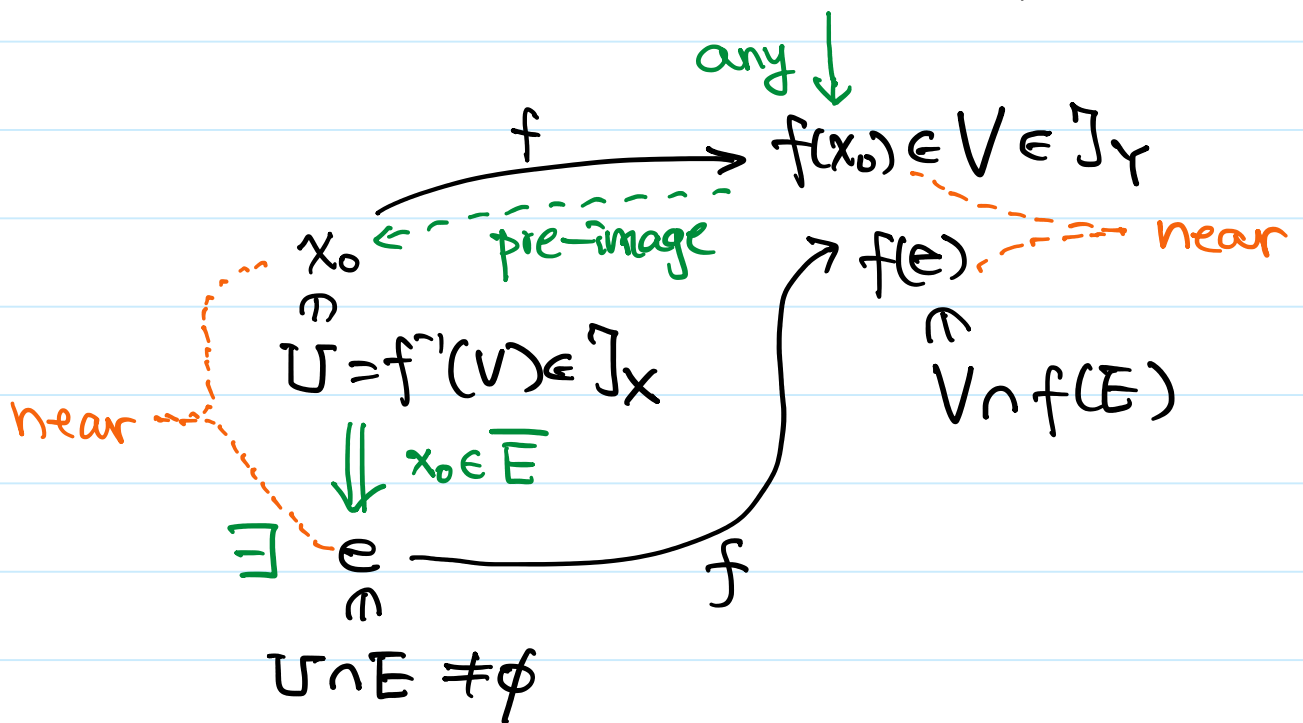 any
f
f(x₀) ∈ V ∈ 𝒥_Y
pre-image
near
x₀
f(e)
∈
∈
U = f⁻¹(V) ∈ 𝒥_X
V ∩ f(E)
near
x₀ ∈ E̅
∃ e
f
∈
U ∩ E ≠ ∅